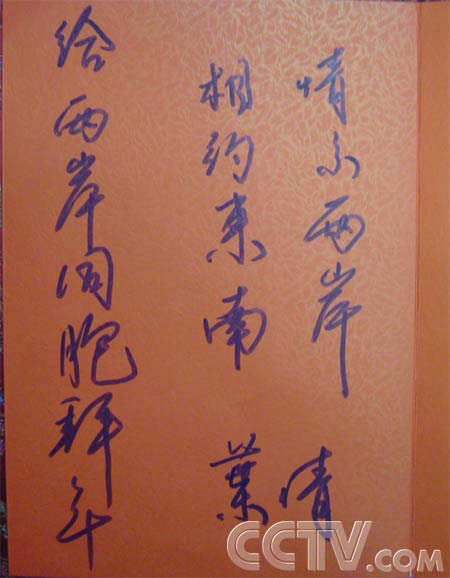 情系两岸
相约東南
葉清
给两岸同胞拜年
CCTV.com